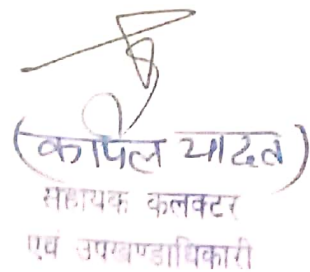 (कपिल यादव)
सहायक कलक्टर
एवं उपखण्डाधिकारी